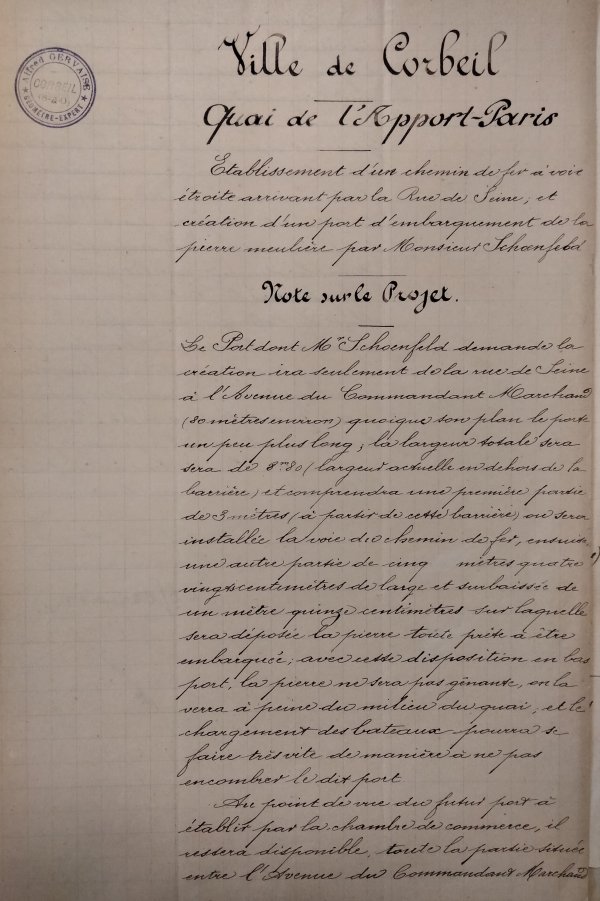 Alfred GERVAISE
CORBEIL
GÉOMÈTRE-EXPERT
Ville de Corbeil
Quai de l'Apport-Paris
Etablissement d'un chemin de fer à voie
étroite arrivant par la Rue de Seine, et
création d'un port d'embarquement de la
pierre meulière par Monsieur Schoenfeld
Note sur le Projet.
Le Port dont Mr Schoenfeld demande la
création ira seulement de la rue de Seine
à l'Avenue du Commandant Marchand
(80 mètres environ) quoique son plan le porte
un peu plus long; la largeur totale sera
sera de 8m80 (largeur actuelle en dehors de la
barrière) et comprendra une première partie
de 3 mètres (à partir de cette barrière) où sera
installée la voie du chemin de fer, ensuite
une autre partie de cinq mètres quatre
vingts centimètres de large et surbaissée de
un mètre quinze centimètres sur laquelle
sera déposée la pierre toute prête à être
embarquée; avec cette disposition en bas
port, la pierre ne sera pas gênante, on la
verra à peine du milieu du quai; et le
chargement des bateaux pourra se
faire très vite de manière à ne pas
encombrer le dit port
Au point de vue du futur port à
établir par la chambre de commerce, il
restera disponible, toute la partie située
entre l'Avenue du Commandant Marchand